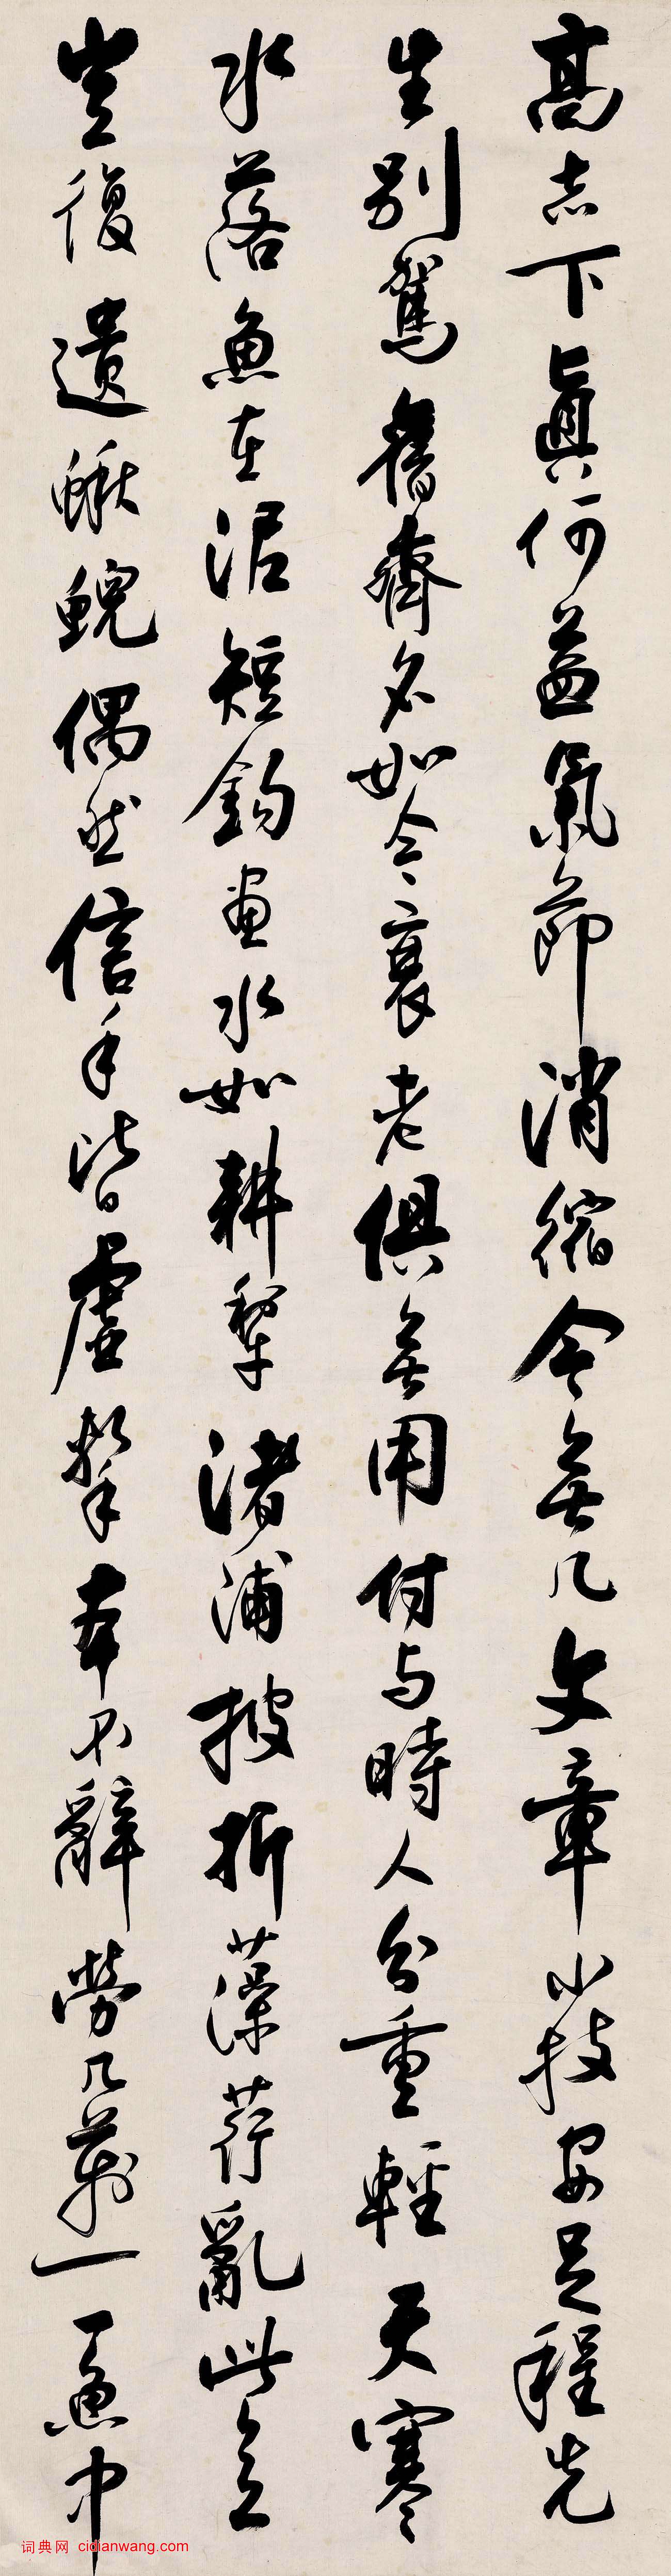 高志下真何益氣節消縮今無几文章小技安足程先
生別駕舊齊名如今衰老俱無用付与時人分重輕天寒
水落魚在泥短鉤畫水如耕犁渚浦披折藻荇亂此意
豈復遺鰍鯢偶然信手皆虛擊本不辭勞几萬一一魚中
词典网 cidianwang.com